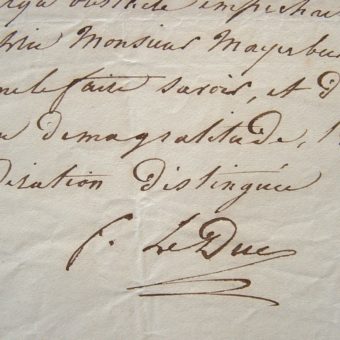 obstacle empêchou
Monsieur Mayerbee
me le faire savoir, et d
demagratitude, l'
dération distinguée
f. LeDuc